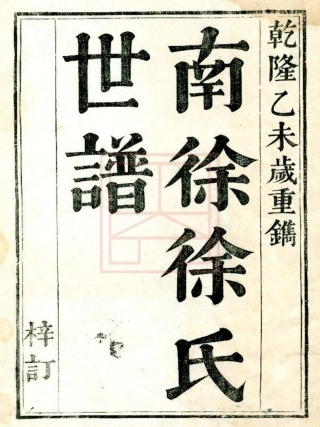 乾隆乙未歲重鐫
南徐徐氏
世譜
梓訂